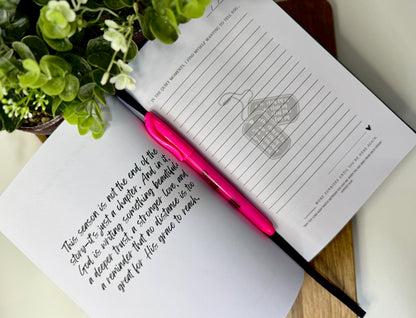 This season is not the end of the
story—it's just a chapter. And in it,
God is writing something beautiful:
a deeper trust, a stronger love, and
a reminder that no distance is too
great for His grace to reach.
IN THE QUIET MOMENTS, I FIND MYSELF WANTING TO TELL YOU...